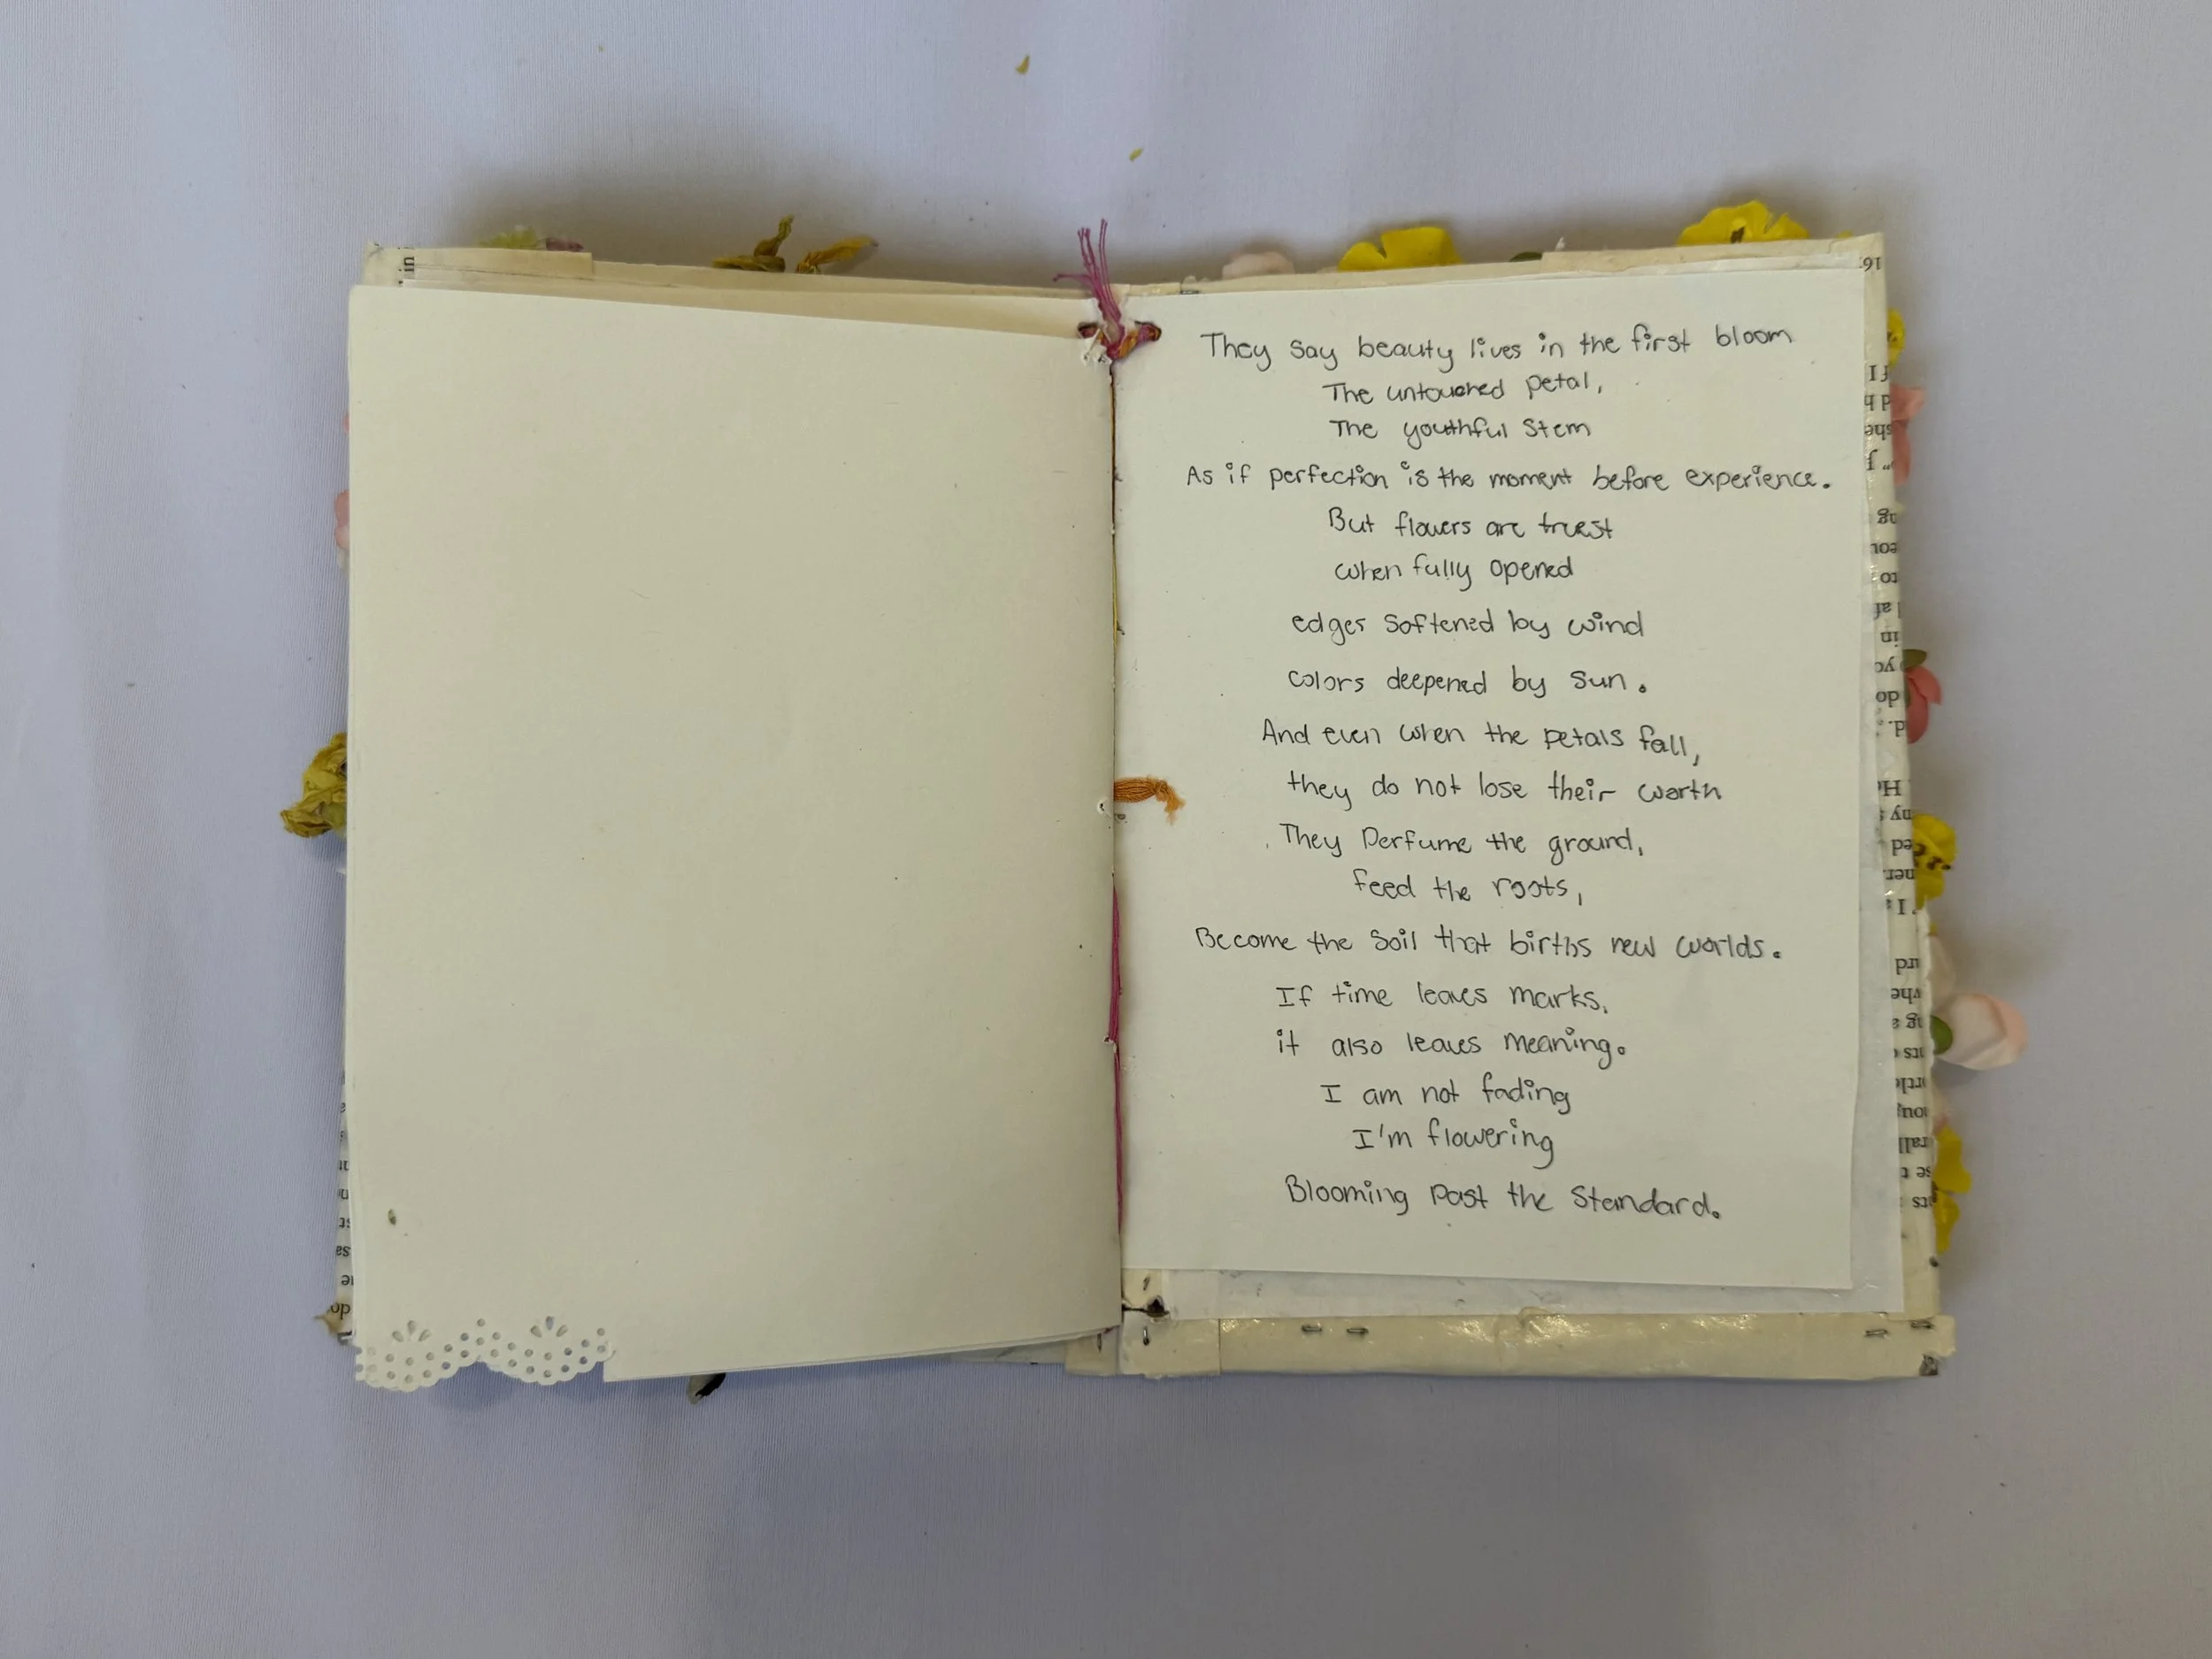 They say beauty lives in the first bloom
The untouched petal,
The youthful stem
As if perfection is the moment before experience.
But flowers are truest
when fully opened
edges softened by wind
colors deepened by sun.
And even when the petals fall,
they do not lose their worth
They perfume the ground,
feed the roots,
Become the soil that births new worlds.
If time leaves marks,
it also leaves meaning.
I am not fading
I'm flowering
Blooming past the standard.